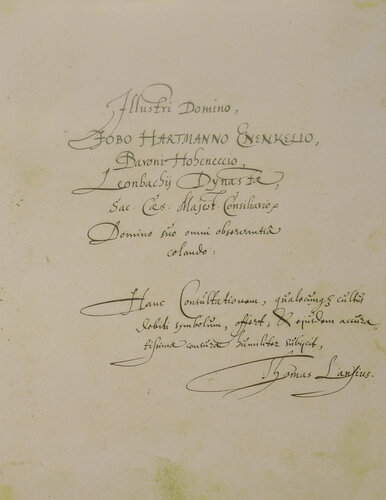 Illustri Domino,
JOBO HARTMANNO ENENKELIO,
Baroni Hoheneccio,
Leonbachij Dynastæ,
Sac. Cæs. Majest. Consiliario,
Domino suo omni observantiâ
colendo:
Hanc Consultationem, qualecunq; cultus
debiti symbolum, offert; & ejusdem accura
tissimæ censuræ humiliter subijcit,
Thomas Lansius.